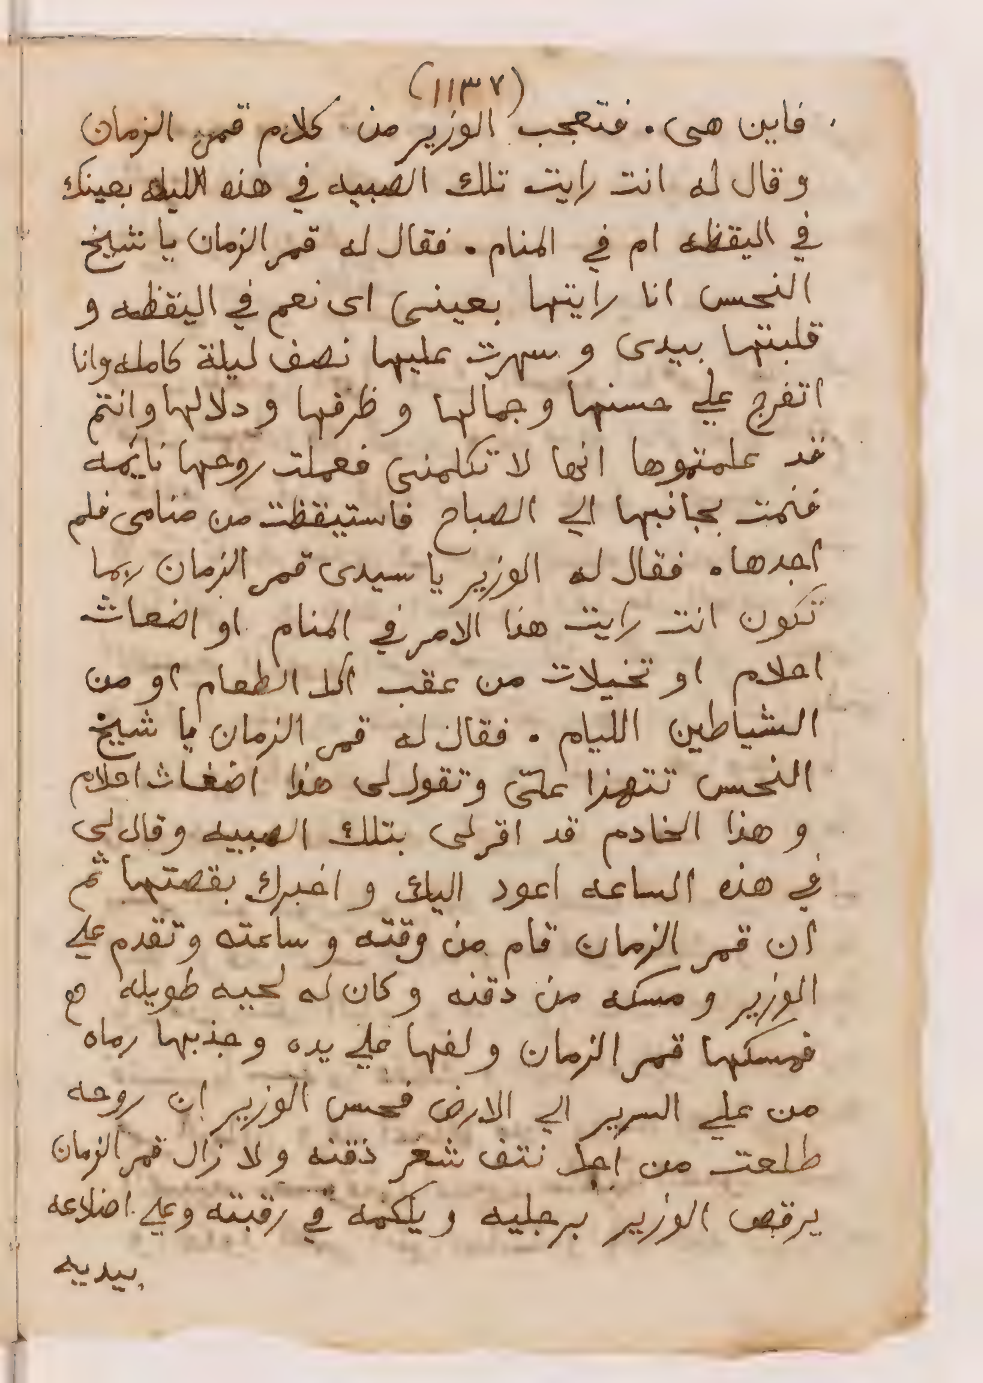 (١١٣٧)
فاين هى . فتعجب الوزير من كلام قمر الزمان
وقال له انت رايت تلك الصبيه في هذه الليله بعينك
في اليقظه ام في المنام . فقال له قمر الزمان يا شيخ
النحس انا رايتها بعينى اى نعم في اليقظه و
قلبتها بيدى و سهرت عليها نصف ليلة كامله وانا
اتفرج علي حسنها وجمالها و ظرفها و دلالها وانتم
قد علمتموها انها لا تكلمنى فعملت روحها نايمه
فنمت بجانبها الي الصباح فاستيقظت من منامى فلم
اجدها . فقال له الوزير يا سيدى قمر الزمان ربما
تكون انت رايت هذا الامر في المنام او اضغاث
احلام او تخيلات من عقب اكل الطعام او من
الشياطين الليام . فقال له قمر الزمان يا شيخ
النحس تتهزا علىّ وتقول لى هذا اضغاث احلام
و هذا الخادم قد اقر لى بتلك الصبيه وقال لى
في هذه الساعه اعود اليك و اخبرك بقصتها ثم
ان قمر الزمان قام من وقته و ساعته وتقدم علي
الوزير و مسكه من دقنه وكان له لحيه طويله
فمسكها قمر الزمان ولفها علي يده وجذبها رماه
من علي السرير الي الارض فحس الوزير ان روحه
طلعت من اجل نتف شعر ذقنه ولا زال قمر الزمان
يرقص الوزير برجليه ويلكمه في رقبته وعلي اضلاعه
بيديه